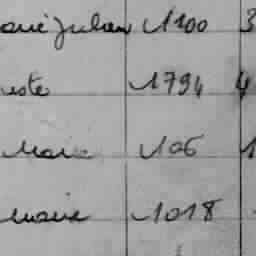 Julien 1100 3
este 1794 4
Marie 106 1
Marie 1018